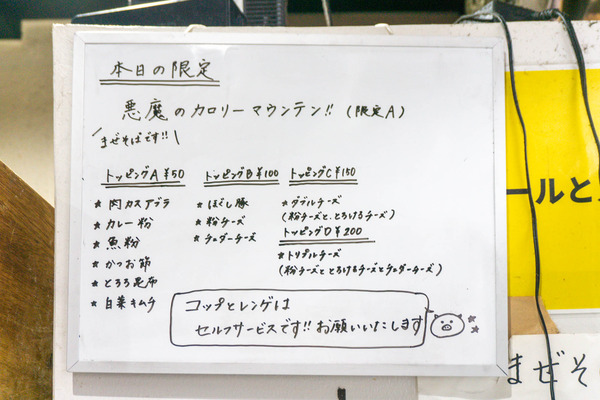 本日の限定
悪魔のカロリーマウンテン!! (限定A)
\まぜそばです!!/
トッピングA ¥50
★肉カスアブラ
★カレー粉
★魚粉
★かつお節
★とろろ昆布
★白菜キムチ
トッピングB ¥100
★ほぐし豚
★粉チーズ
★チェダーチーズ
トッピングC ¥150
★ダブルチーズ
(粉チーズと、とろけるチーズ)
トッピングD ¥200
★トリプルチーズ
(粉チーズととろけるチーズとチェダーチーズ)
コップとレンゲは
セルフサービスです!! お願いいたします
ールと
まぜそ